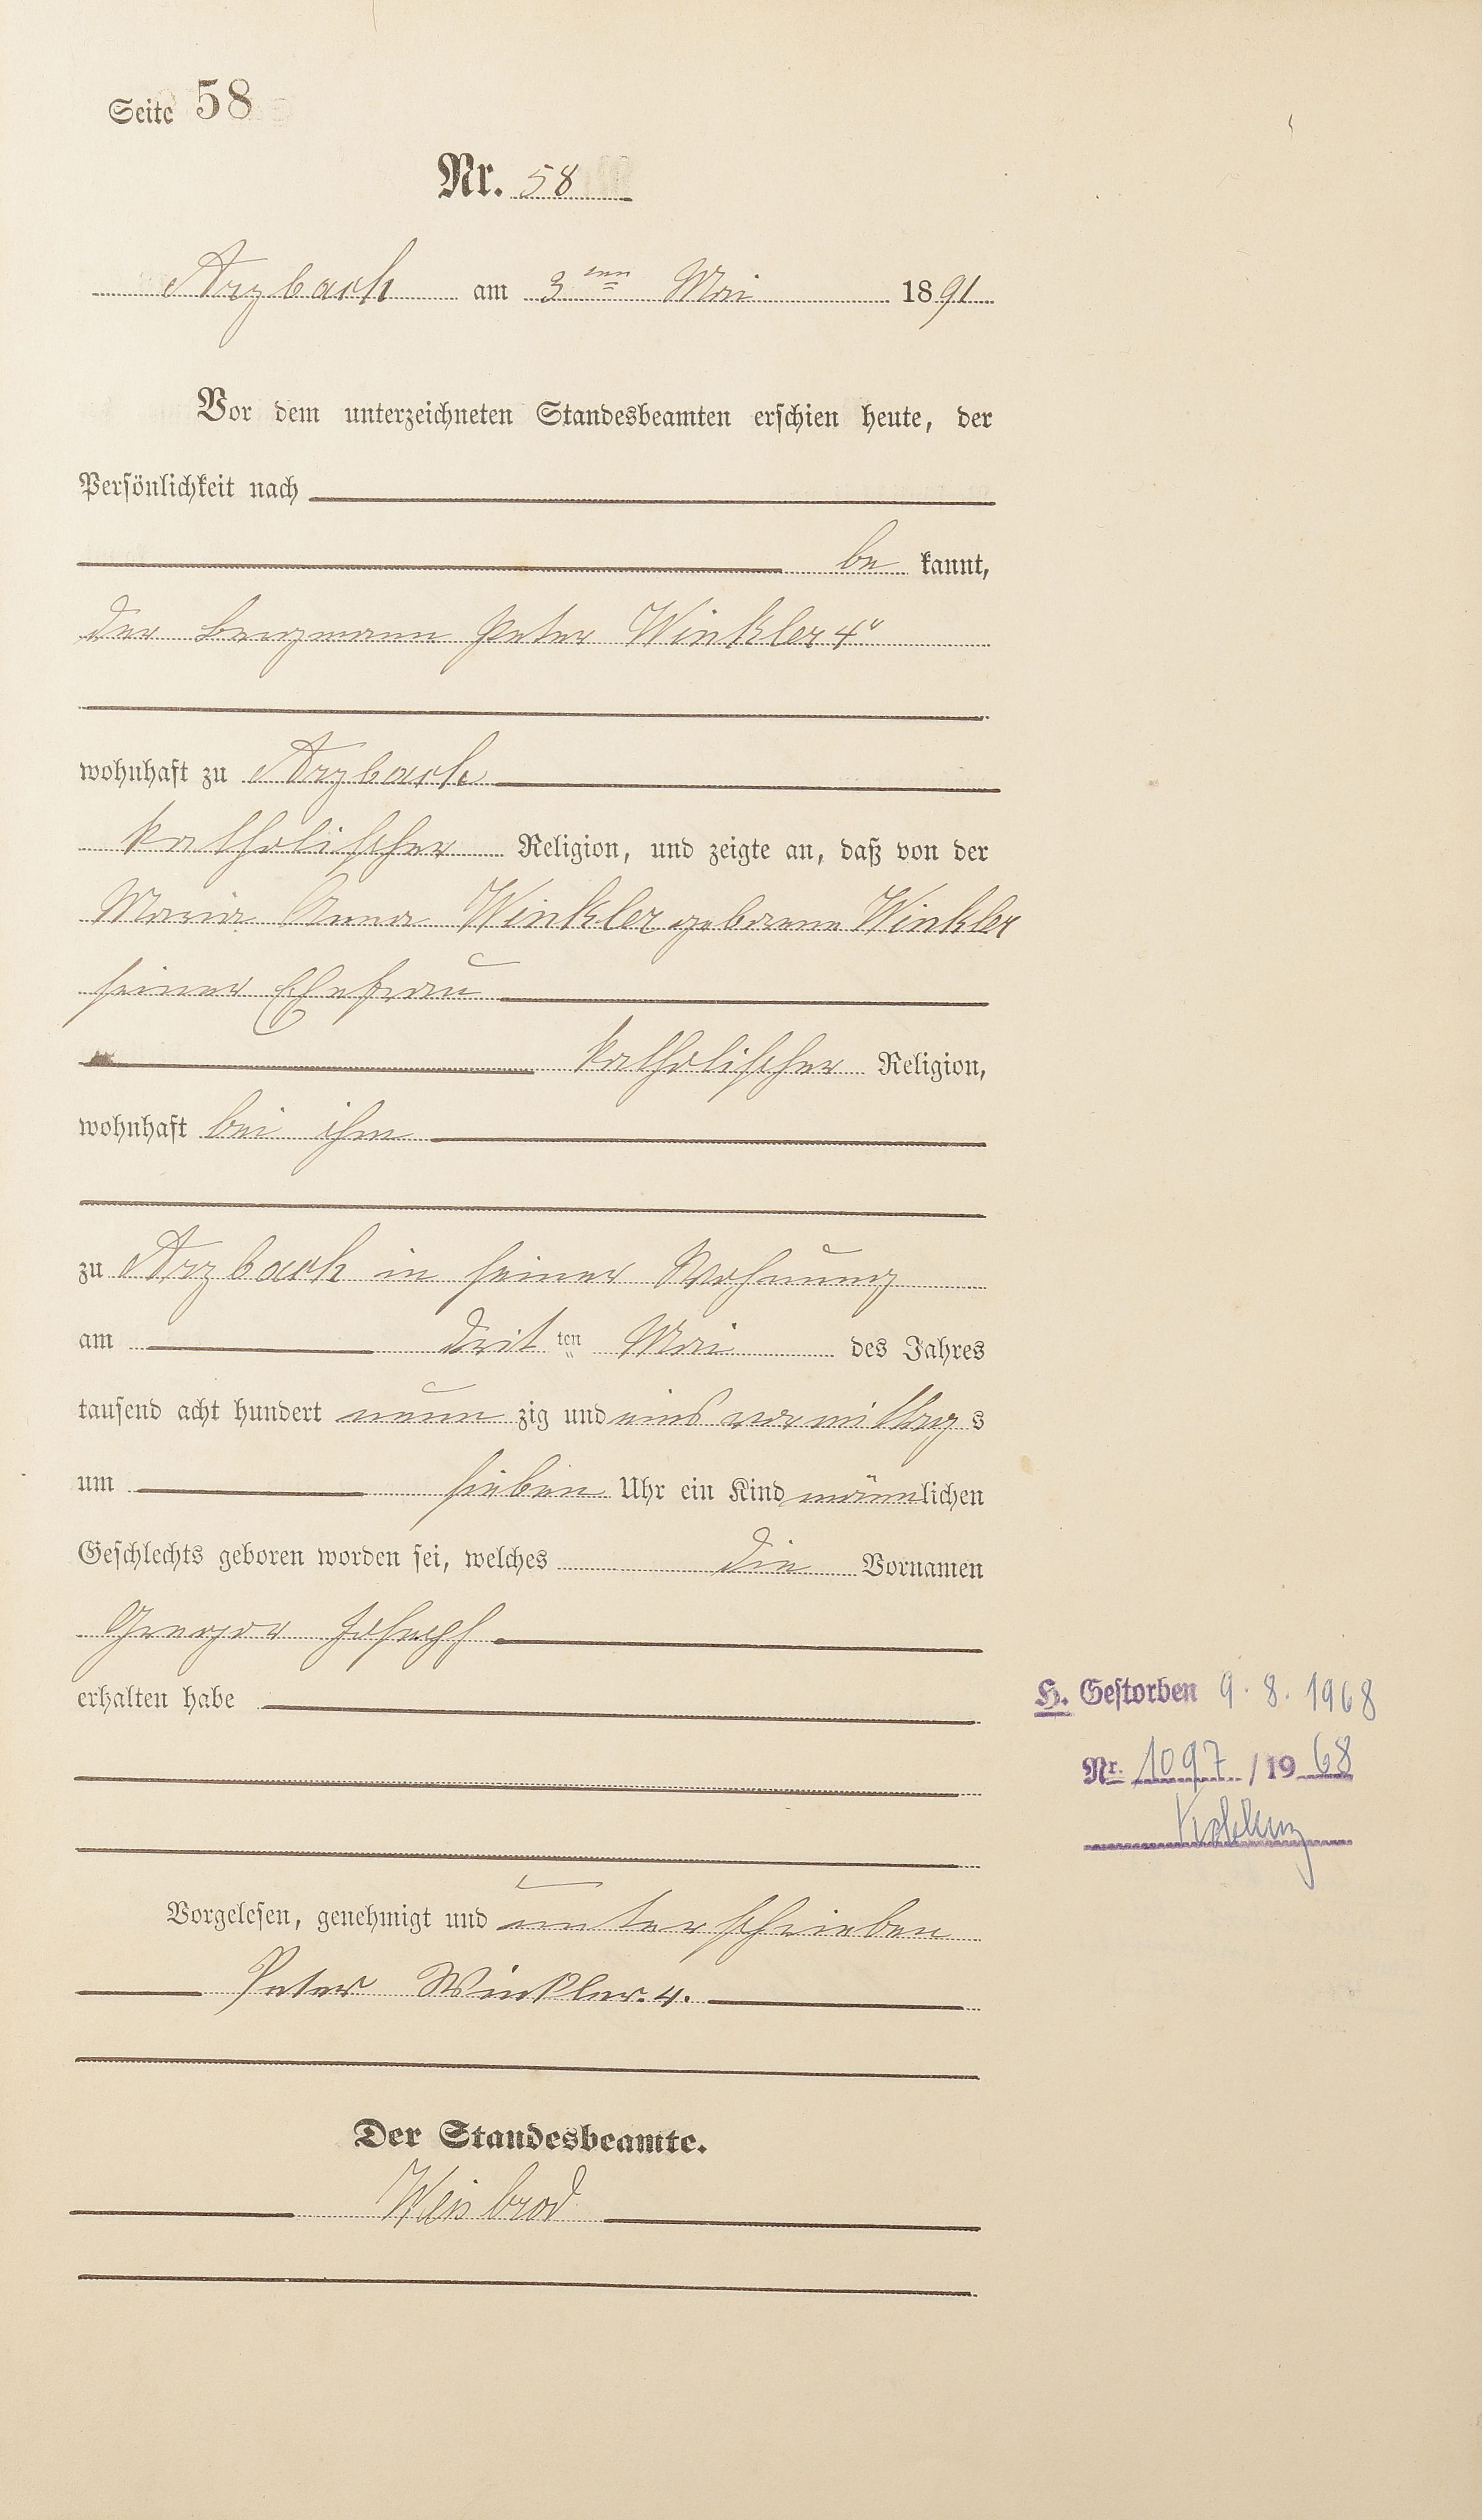 Seite 58
Nr. 58
Arzbach am 3ten Mai 1891
Vor dem unterzeichneten Standesbeamten erschien heute, der
Persönlichkeit nach
be kannt,
der Bergmann Peter Winkler 4r
wohnhaft zu Arzbach
katholischer Religion, und zeigte an, daß von der
Maria Anna Winkler geborene Winkler
seiner Ehefrau
katholischer Religion,
wohnhaft bei ihm
zu Arzbach in seiner Wohnung
am dritten Mai des Jahres
tausend acht hundert neun zig und eins vormittags
um sieben Uhr ein Kind männlichen
Geschlechts geboren worden sei, welches die Vornamen
Gregor Joseph
erhalten habe
H. Gestorben 9.8.1968
Nr. 1097 / 1968
Koblenz
Vorgelesen, genehmigt und unterschrieben
Peter Winkler. 4.
Der Standesbeamte.
Weisbrod